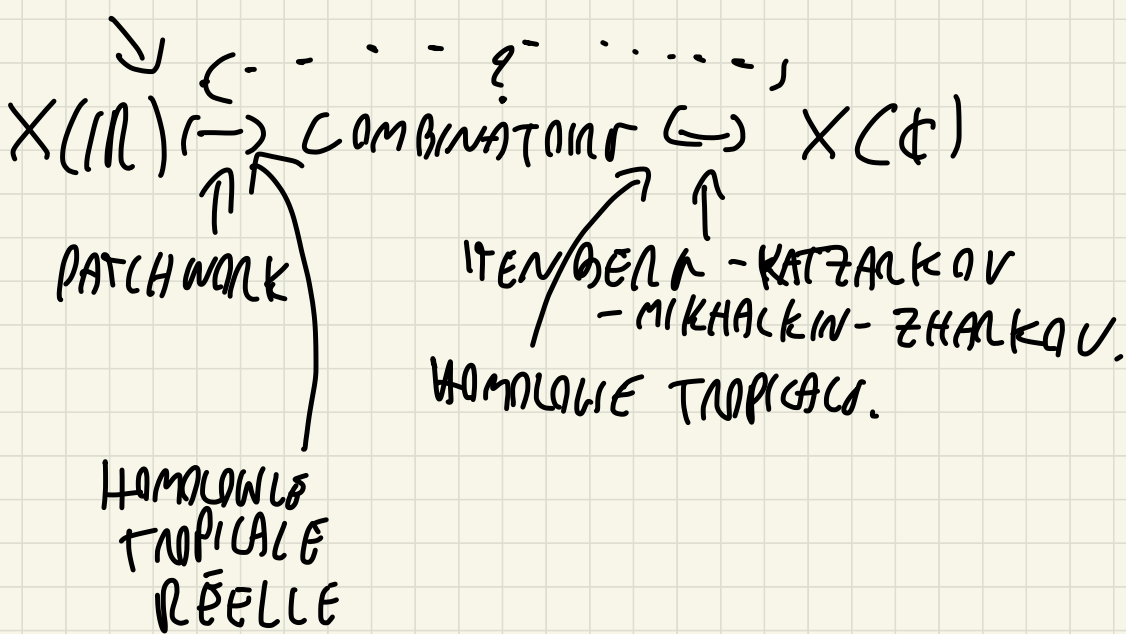 ?
X(ℝ) ↔ COMBINATOIRE ↔ X(ℂ)
PATCHWORK
ITENBERG - KATZARKOV
- MIKHALKIN - ZHARKOV.
HOMOLOGIE TROPICALE.
HOMOLOGIE
TROPICALE
RÉELLE